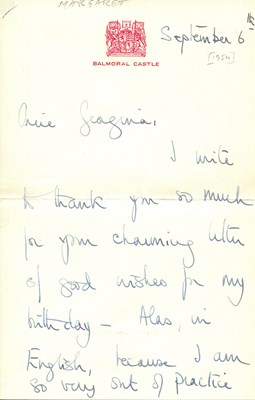 MARGARET
BALMORAL CASTLE
September 6
[1954]
Georgina,
I write
to thank you so much
for your charming letter
of good wishes for my
birthday — Alas, in
English, because I am
so very out of practice